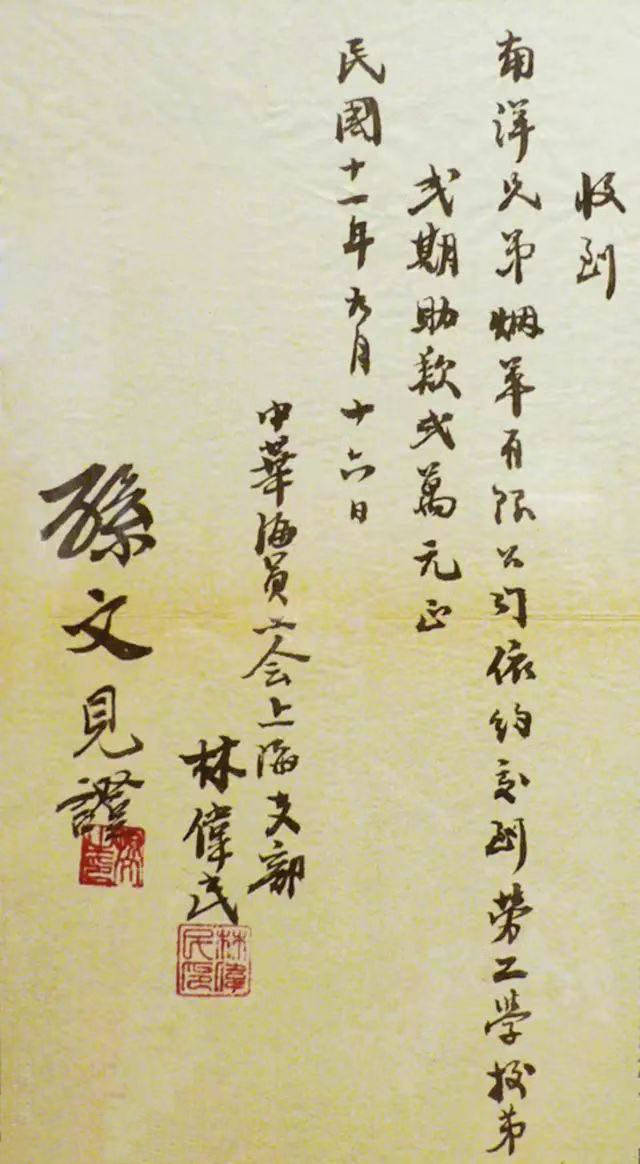 收到
南洋兄弟烟草有限公司依約交到勞工學校第
弍期助款弍萬元正
民國十一年九月十六日
中華海員工会上海支部
林偉民
林偉民印
孫文見證